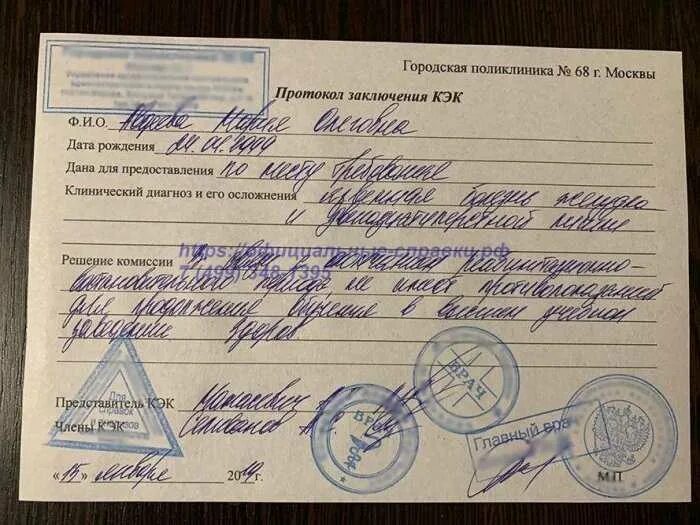 Городская поликлиника № 68 г. Москвы
Протокол заключения КЭК
Ф.И.О. Авдеева Мария Олеговна
Дата рождения
Дана для предоставления по месту требования
Клинический диагноз и его осложнения язвенная болезнь желудка
и двенадцатиперстной кишки
https://официальные-справки.рф
Решение комиссии В связи реабилитационно-
7 (499) 348-1395
восстановительного периода не имеет противопоказаний
для продолжения обучения в высшем учебном
заведении. Здоров
ВРАЧ
Для
справок
Представитель КЭК
Члены КЭК
Главный врач
«15» января 2019г.
М.П.